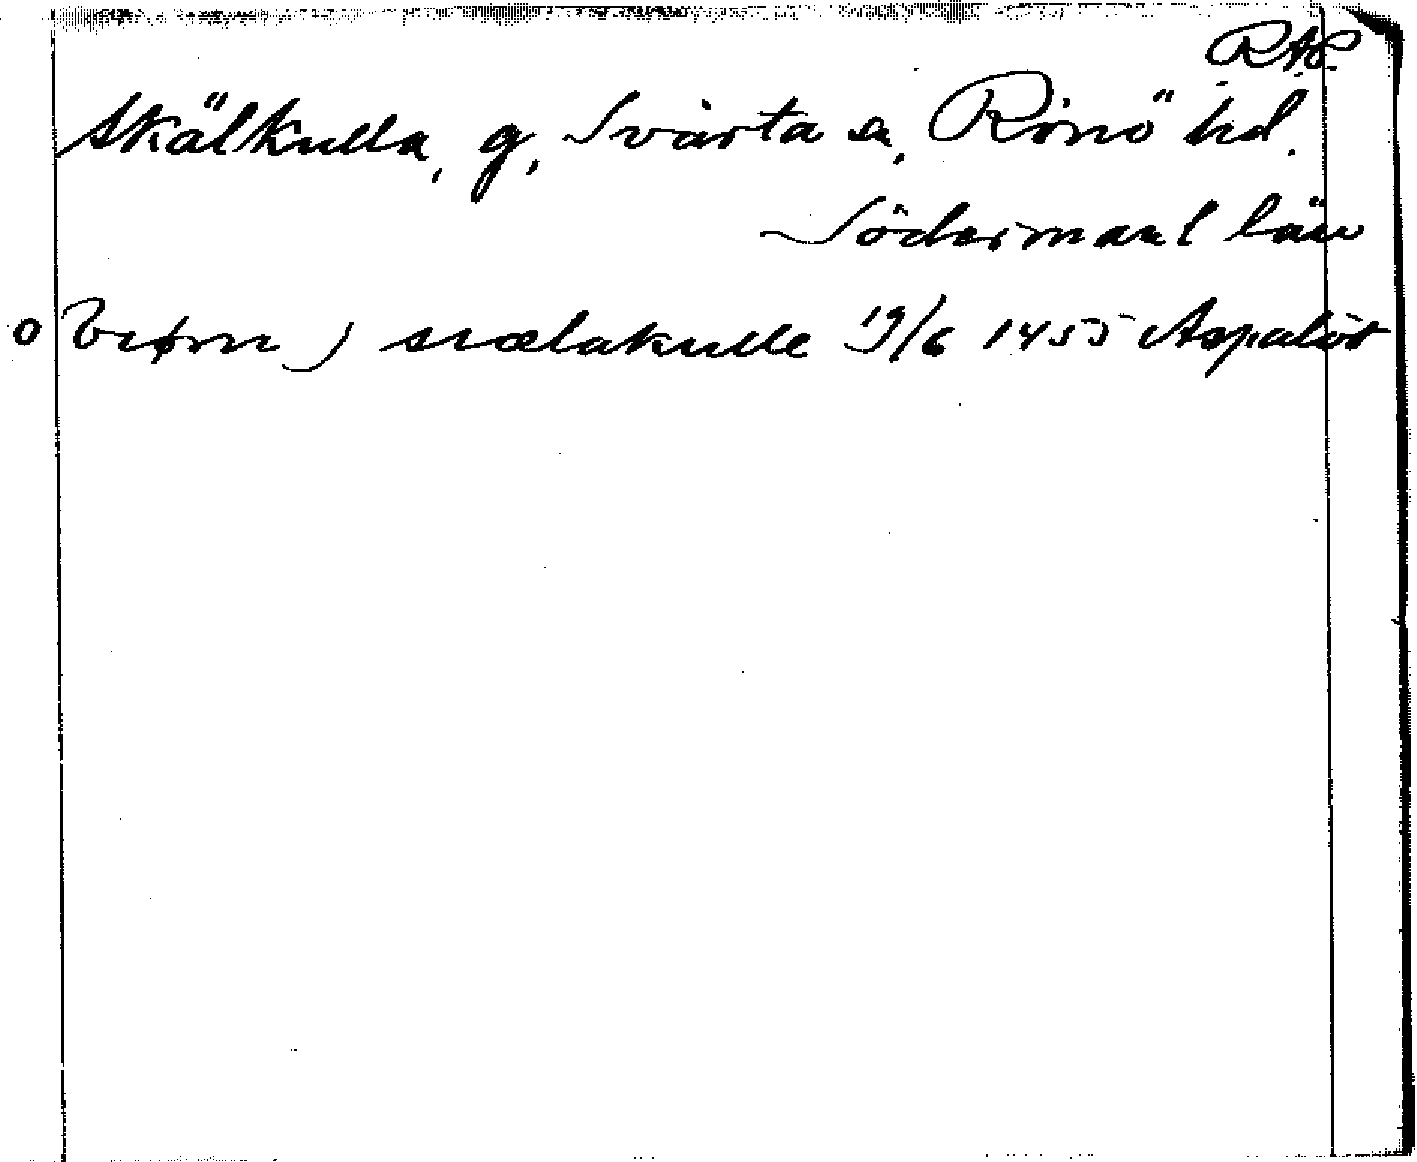 RAP.
Skälkulla, g, Svärta sn, Rönö hd.
Södermanl län
o biørn j skælakulle 19/6 1455 Aspalöt